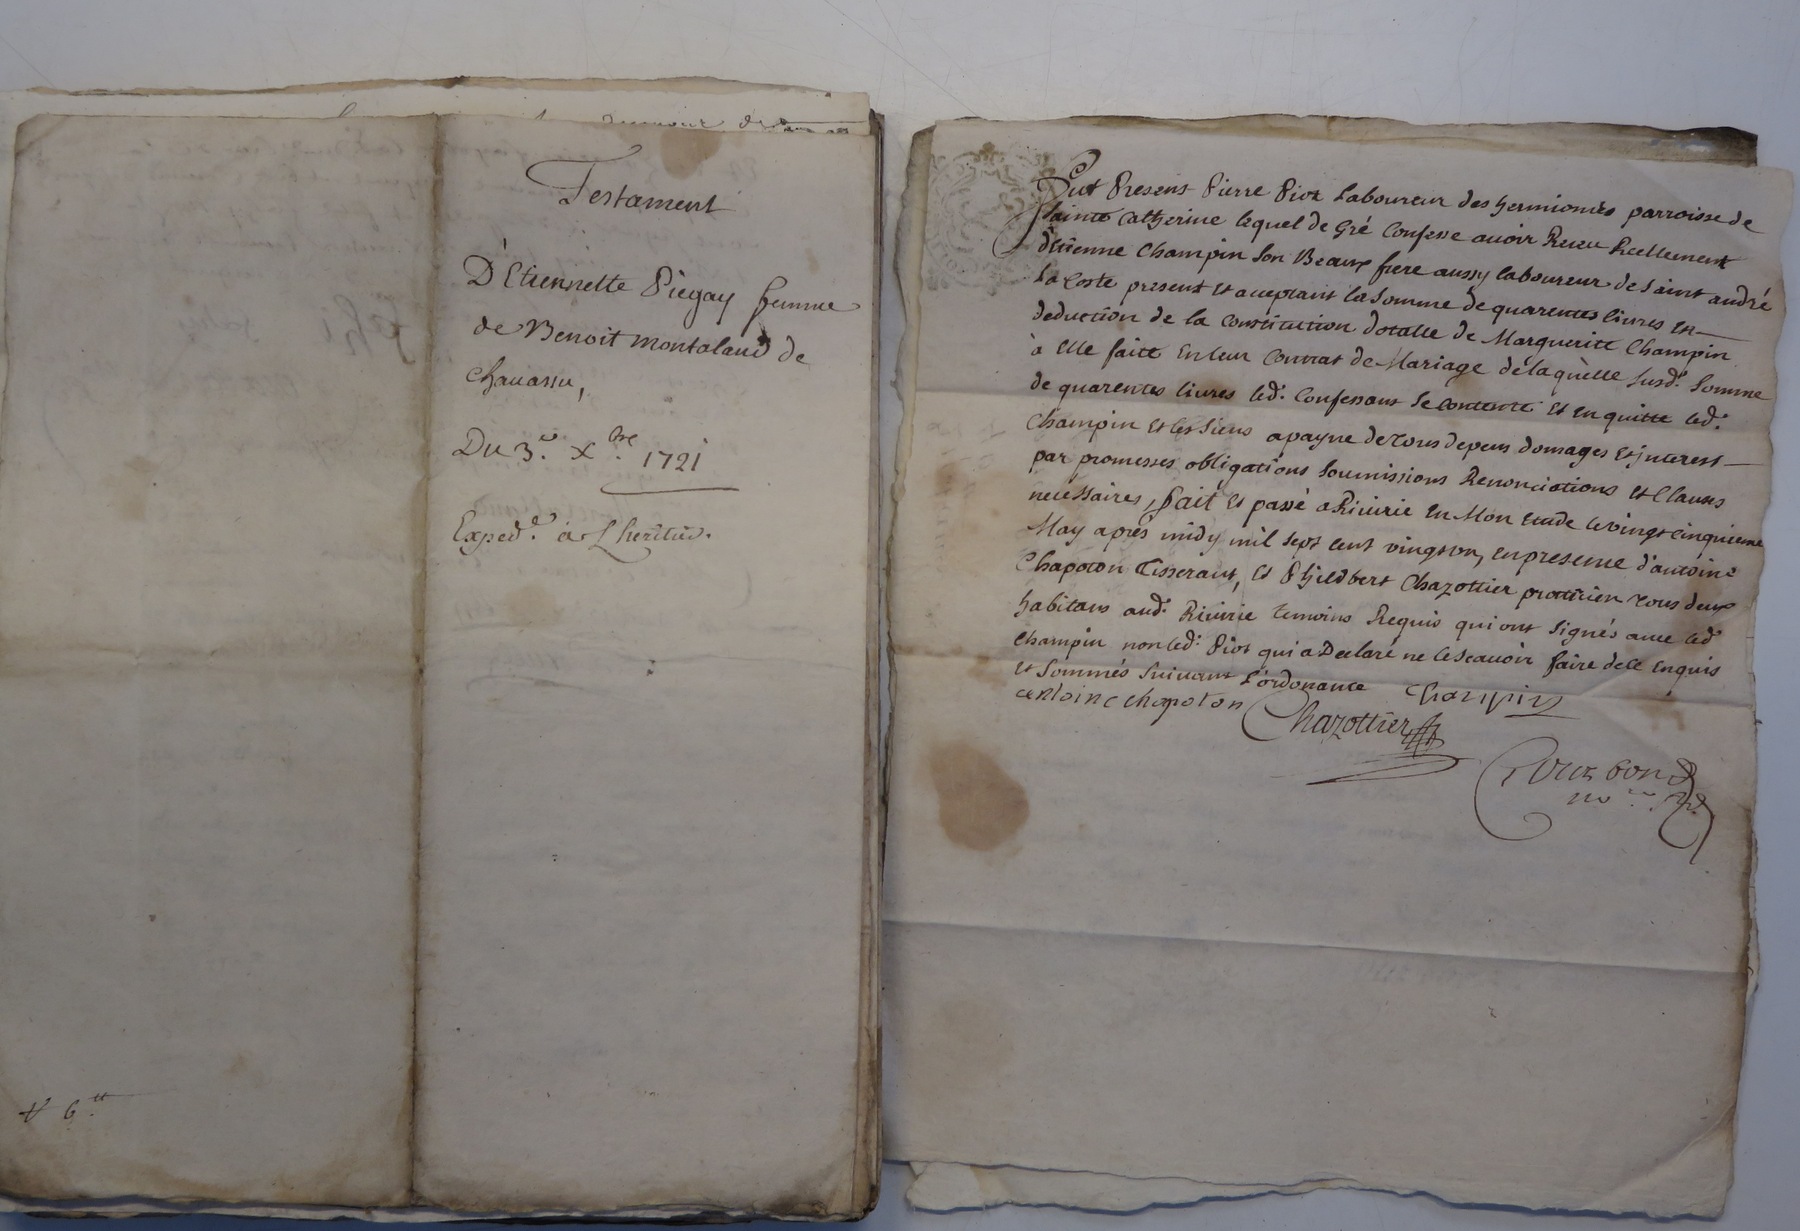 Testament
D'Etiennette Piegay femme
de Benoit montaland de
chauassu,
Du 3.e xbre. 1721
Exped.e a L'heritier.
6.tt
Fut Presens Pierre Piot Laboureur des hermionnés parroisse de
Sainte Catherine lequel de Gré Confesse auoir Receu Reellement
d'Etienne Champin son Beaux frere aussy laboureur de saint andré
La Coste present et acceptant la somme de quarentes liures En
deduction de la Constitution dotalle de Margueritt Champin
à Elle faitte En leur Contrat de Mariage de laquèlle susd. somme
de quarentes liures led. Confessant se contente et en quitte led.
Champin et les siens a payne de tous depens domages et jnterest
par promesses obligations soumissions Renonciations et Clauses
necessaires, fait et passé a Riuirie en Mon Etude le vingt cinquieme
May aprés midy mil sept cent vingt vn, en presence d'antoine
Chapoton Tisserant, et Philibert Chazottier pratticien tous deux
habitans aud. Riuirie temoins Requis qui ont signés auec led
Champin non led. Piot qui a Declaré ne le scauoir faire de ce enquis
et sommés suiuant l'ordonance
Champin
antoine chapoton
Chazottier